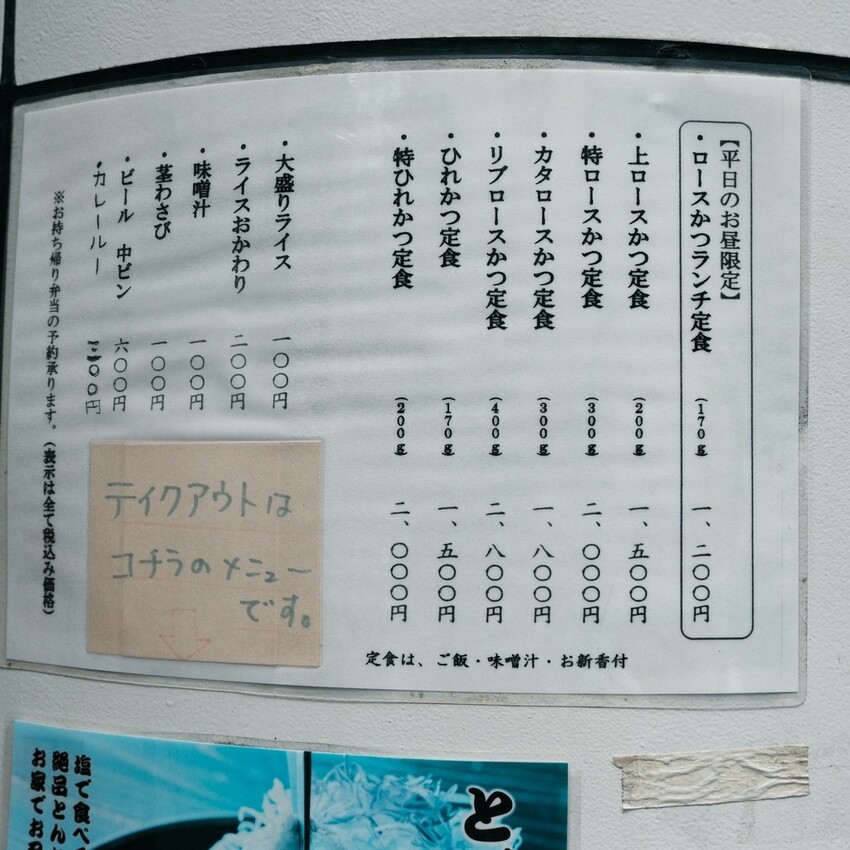 【平日のお昼限定】
・ロースかつランチ定食 (170g) 一、二〇〇円
・上ロースかつ定食 (200g) 一、五〇〇円
・特ロースかつ定食 (300g) 二、〇〇〇円
・カタロースかつ定食 (300g) 一、八〇〇円
・リブロースかつ定食 (400g) 二、八〇〇円
・ひれかつ定食 (170g) 一、五〇〇円
・特ひれかつ定食 (200g) 二、〇〇〇円
定食は、ご飯・味噌汁・お新香付
・大盛りライス 一〇〇円
・ライスおかわり 二〇〇円
・味噌汁 一〇〇円
・茎わさび 一〇〇円
・ビール 中ビン 六〇〇円
・カレールー 三〇〇円
※お持ち帰り弁当の予約承ります。(表示は全て税込み価格)
テイクアウトは
コチラのメニュー
です。
と
塩で食べ
絶品とん
お家でお